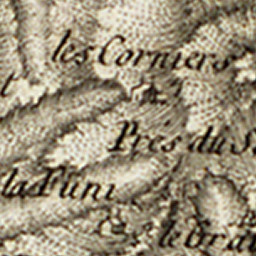 les Corniers
t
Prés du S
la Funi
le Gra